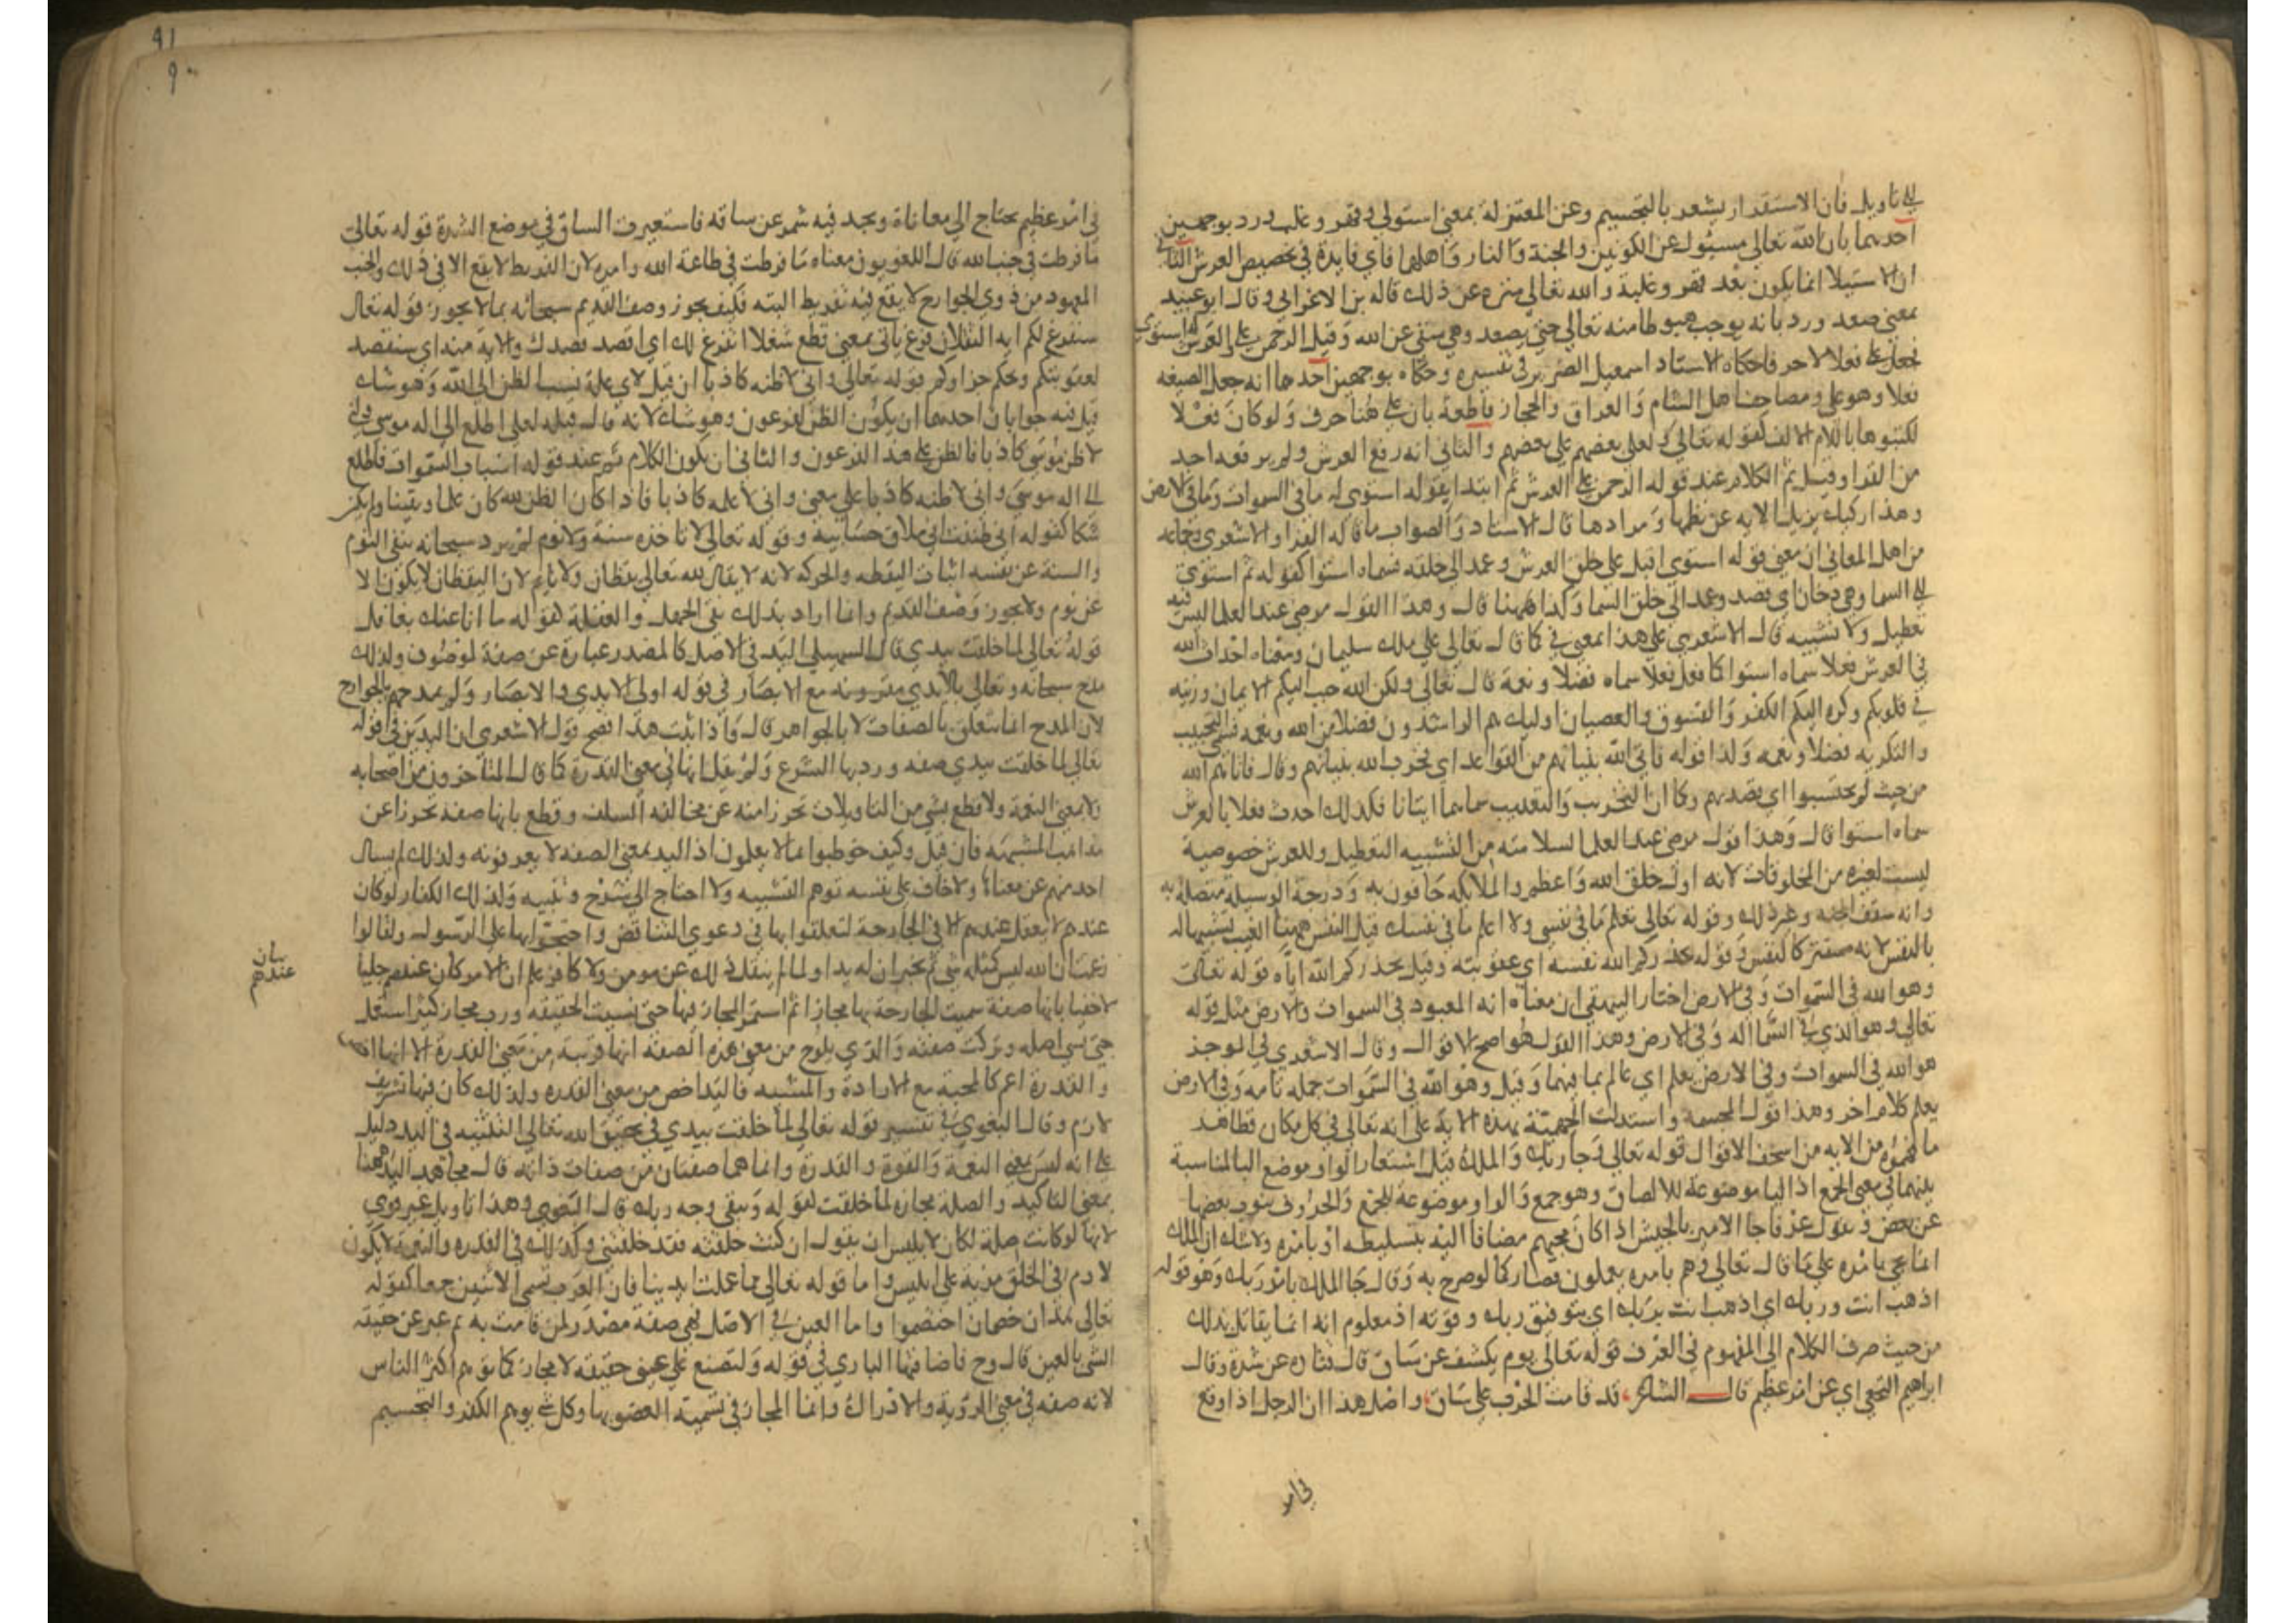 الي تاويل فان الاستقرار يشعر بالتجسيم وعن المعتزلة بمعني استولي وقهر وغلب ورد بوجهين
احدهما بان الله تعالي مستول عن الكونين والجنة والنار واهلها فاي فايدة في تخصيص العرش الثاني
ان الاستيلا انما يكون بعد قهر وغلبة والله تعالي منزه عن ذلك قاله بن الاعرابي وقال ابو عبيد
بمعني صعد ورد بانه يوجب هبوطا منه تعالي حتي يصعد وهي منفي عن الله وقيل الرحمن علي العرش له استوي
فجعل علي فعلا لا حرفا حكاه الاستاد اسمعيل الضرير في تفسيره وحكاه بوجهين احدهما انه جعل الصيغه
فعلا وهو علي ومصاحف اهل الشام والعراق والحجاز قاطعة بان علي هنا حرف ولو كان فعلا
لكتبوها باللام الالف كقوله تعالي ولعلي بعضهم علي بعضهم والثاني انه رفع العرش ولم يرفعه احد
من القرا وقيل تم الكلام عند قوله الرحمن علي العرش ثم ابتدا بقوله استوي له ما في السموات وما في الارض
وهذا ركيك يزيل الايه عن نظمها ومرادها قال الاستاد والصواب ما قاله الفرا والاشعري وجماعه
من اهل المعاني ان معني قوله استوي اقبل علي خلق العرش وعمد الي خلقه فسماه استوا كقوله ثم استوي
الي السما وهي دخان اي قصد وعمد الي خلق السما وكذا ههنا قال وهذا القول مرضي عند العلما ليس فيه
تعطيل ولا تشبيه قال الاشعري علي هذا بمعني في كما قال تعالي علي ملك سليمان ومعناه احداث الله
في العرش فعلا سماه استوا كما فعل فعلا سماه فضلا ونعمة قال تعالي ولكن الله حبب اليكم الايمان وزينه
في قلوبكم وكره اليكم الكفر والفسوق والعصيان اوليك هم الراشدون فضلا من الله ونعمه فسمي التحبيب
والتكريه فضلا ونعمه وكذا قوله فاتي الله بنيانهم من القواعد اي يخرب الله بنيانهم وقال فاتاهم الله
من حيث لم يحتسبوا اي قصدهم وكما ان التخريب والتعذيب سماهما اتيانا فكذلك احدث فعلا بالعرش
سماه استوا قال وهذا قول مرضي عند العلما لسلامته من التشبيه التعطيل وللعرش خصوصية
ليست لغيره من المخلوقات لانه اول خلق الله واعظم والملايكه حافون به ودرجة الوسيلة متصله به
وانه سقف الجنه وغير ذلك وقوله تعالي تعلم ما في نفسي ولا اعلم ما في نفسك قيل النفس ههنا الغيب تشبيها له
بالنفس لانه مستتر كالنفس وقوله يحذركم الله نفسه اي عقوبته وقيل يحذركم الله اياه قوله تعالي
وهو الله في السموات وفي الارض اختار البيهقي ان معناه انه المعبود في السموات والارض مثل قوله
تعالي وهو الذي في السما اله وفي الارض وهذا القول هو اصح الاقوال وقال الاشعري في الموجز
هو الله في السموات وفي الارض يعلم اي عالم بما فيهما وقيل وهو الله في السموات جمله تامه وفي الارض
يعلم كلام اخر وهذا قول المجسمه واستدلت الجهمية بهذه الاية علي انه تعالي في كل مكان فظاهر
ما فهموه من الايه من اسخف الاقوال قوله تعالي وجا ربك والملك قيل استعار الواو موضع البا لمناسبة
بينهما في معني الجمع اذ البا موضوعة للالصاق وهو جمع والواو موضوعة للجمع والحروف ينوب بعضها
عن بعض وتقول عرفا جا الامير بالجيش اذا كان مجيهم مضافا اليه بتسليطه او بامره ولا شك ان الملك
انما يجي بامره علي ما قال تعالي وهم بامره يعملون فصار كما لو صرح به وقال جا الملك بامر ربك وهو قوله
اذهب انت وربك اي اذهب انت بربك اي بتوفيق ربك وقوته اذ معلوم انه انما يقاتل بذلك
من حيث صرف الكلام الي المفهوم في العرف قوله تعالي يوم يكشف عن ساق قال قتاده عن شدة وقال
ابراهيم النخعي اي عن امر عظيم قال الشاعر قد قامت الحرب علي ساق واصل هذا ان الرجل اذا وقع
في امر
91
90
في امر عظيم يحتاج الي معاناة ويجد فيه شمر عن ساقه فاستعيرت الساق في موضع الشدة قوله تعالي
ما فرطت في جنب الله قال اللغويون معناه ما فرطت في طاعة الله وامره لان التفريط لا يقع الا في ذلك والجنب
المعهود من ذوي الجوارح لا يقع فيه تفريط البته فكيف يجوز وصف القديم سبحانه بما لا يجوز قوله تعالي
سنفرغ لكم ايه الثقلان فرغ ياتي بمعني قطع شغلا اتفرغ لك اي اقصد قصدك والاية منه اي سنقصد
لعقوبتكم ونحكم جزاوكم قوله تعالي واني لاظنه كاذبا ان قيل لاي علة نسب الظن الي الله وهو شاك
قيل فيه جوابان احدهما ان يكون الظن لفرعون وهو شاك لانه قال قبله لعلي اطلع الي اله موسي واني
لاظن موسي كاذبا فالظن علي هذا لفرعون والثاني ان يكون الكلام تم عند قوله اسباب السموات فاطلع
الي اله موسي واني لاظنه كاذبا علي معني واني لاعلمه كاذبا فاذا كان الظن لله كان علما ويقينا ولم يكن
شكا كقوله اني ظننت اني ملاق حسابيه وقوله تعالي لا تاخذه سنة ولا نوم لم يرد سبحانه بنفي النوم
والسنة عن نفسه اثبات اليقظه والحركه لانه لا يقال لله تعالي يقظان ولا نايم لان اليقظان لا يكون الا
عن نوم ولا يجوز وصف القديم وانما اراد بذلك نفي الجهل والغفلة كقوله ما انا عنك بغافل
قوله تعالي لما خلقت بيدي قال السهيلي اليد في الاصل كالمصدر عبارة عن صفة لموصوف ولذلك
مدح سبحانه وتعالي بالايدي مقرونه مع الابصار في قوله اولي الايدي والابصار ولم يمدحهم بالجوارح
لان المدح انما يتعلق بالصفات لا بالجواهر قال واذا ثبت هذا فصح قول الاشعري ان اليدين في قوله
تعالي لما خلقت بيدي صفه ورد بها الشرع ولم يقل انها في معني القدرة كما قال المتاخرون من اصحابه
ولا معني النعمة ولا قطع بشي من التاويلات تحرزا منه عن مخالفة السلف وقطع بانها صفة تحرزا عن
مذاهب المشبهه فان قيل وكيف خوطبوا بما لا يعلمون اذ اليد بمعني الصفه لا يعرفونه ولذلك لم يسال
احد منهم عن معناها ولا خاف علي نفسه توهم التشبيه ولا احتاج الي شرح وتنبيه وكذلك الكفار لو كان
عندهم لا يعقل عندهم الا في الجارحة لتعلقوا بها في دعوي التناقض واحتجوا بها علي الرسول ولقالوا
زعمت ان الله ليس كمثله شي ثم تخبر ان له يدا ولما لم ينقل ذلك عن مومن ولا كافر علم ان الامر كان عندهم جليا
بيان
عندهم
لا خفيا بانها صفة سميت الجارحة بها مجازا ثم استمر المجاز فيها حتي نسيت الحقيقه ورب مجاز كثير استعمل
حتي نسي اصله وتركت صفته والذي يلوح من معني هذه الصفه انها قريبة من معني القدرة الا انها اخص
والقدرة اعم كالمحبة مع الارادة والمشيه فاليد اخص من معني القدره ولذلك كان فيها تشريف
لازم وقال البغوي في تفسير قوله تعالي لما خلقت بيدي في تحقيق الله تعالي التثنيه في اليد دليل
علي انه ليس بمعني النعمة والقوة والقدرة وانما هما صفتان من صفات ذاته قال مجاهد اليد ههنا
بمعني التاكيد والصلة مجازه لما خلقت كقوله ويبقي وجه ربك قال البغوي وهذا تاويل غير قوي
لانها لو كانت صلة لكان لابليس ان يقول ان كنت خلقته فقد خلقتني وكذلك في القدره والنعمة لا يكون
لادم في الخلق مزية علي ابليس واما قوله تعالي مما عملت ايدينا فان العرب تسمي الاثنين جمعا كقوله
تعالي هذان خصمان اختصموا واما العين في الاصل فهي صفة مصدر لمن قامت به ثم عبر عن حقيقة
الشي بالعين قال وح فاضافتها الباري في قوله ولتصنع علي عيني حقيقه لا مجاز كما توهم اكثر الناس
لانه صفه في معني الروية والادراك وانما المجاز في تسمية العضو بها وكل شي يوهم الكفر والتجسيم